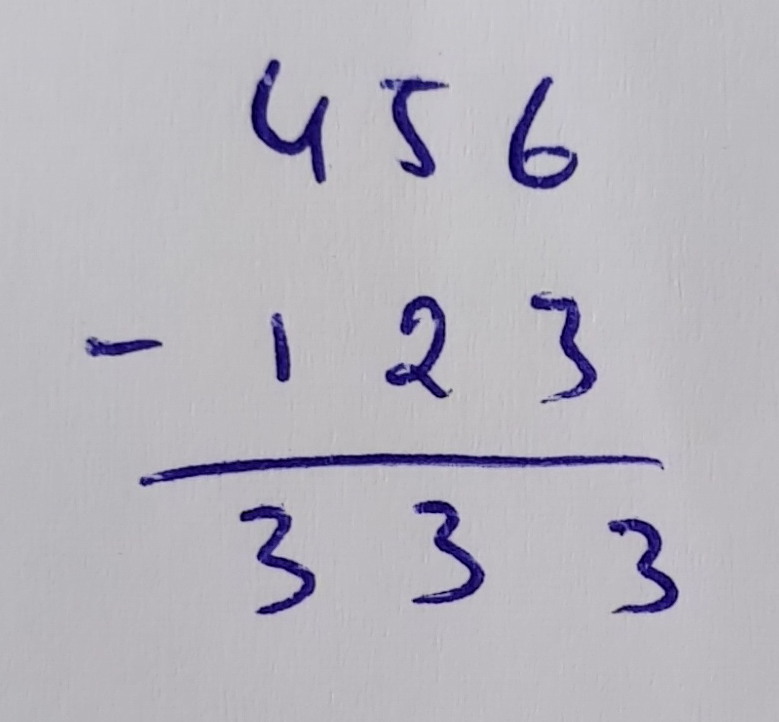 456
- 123
333